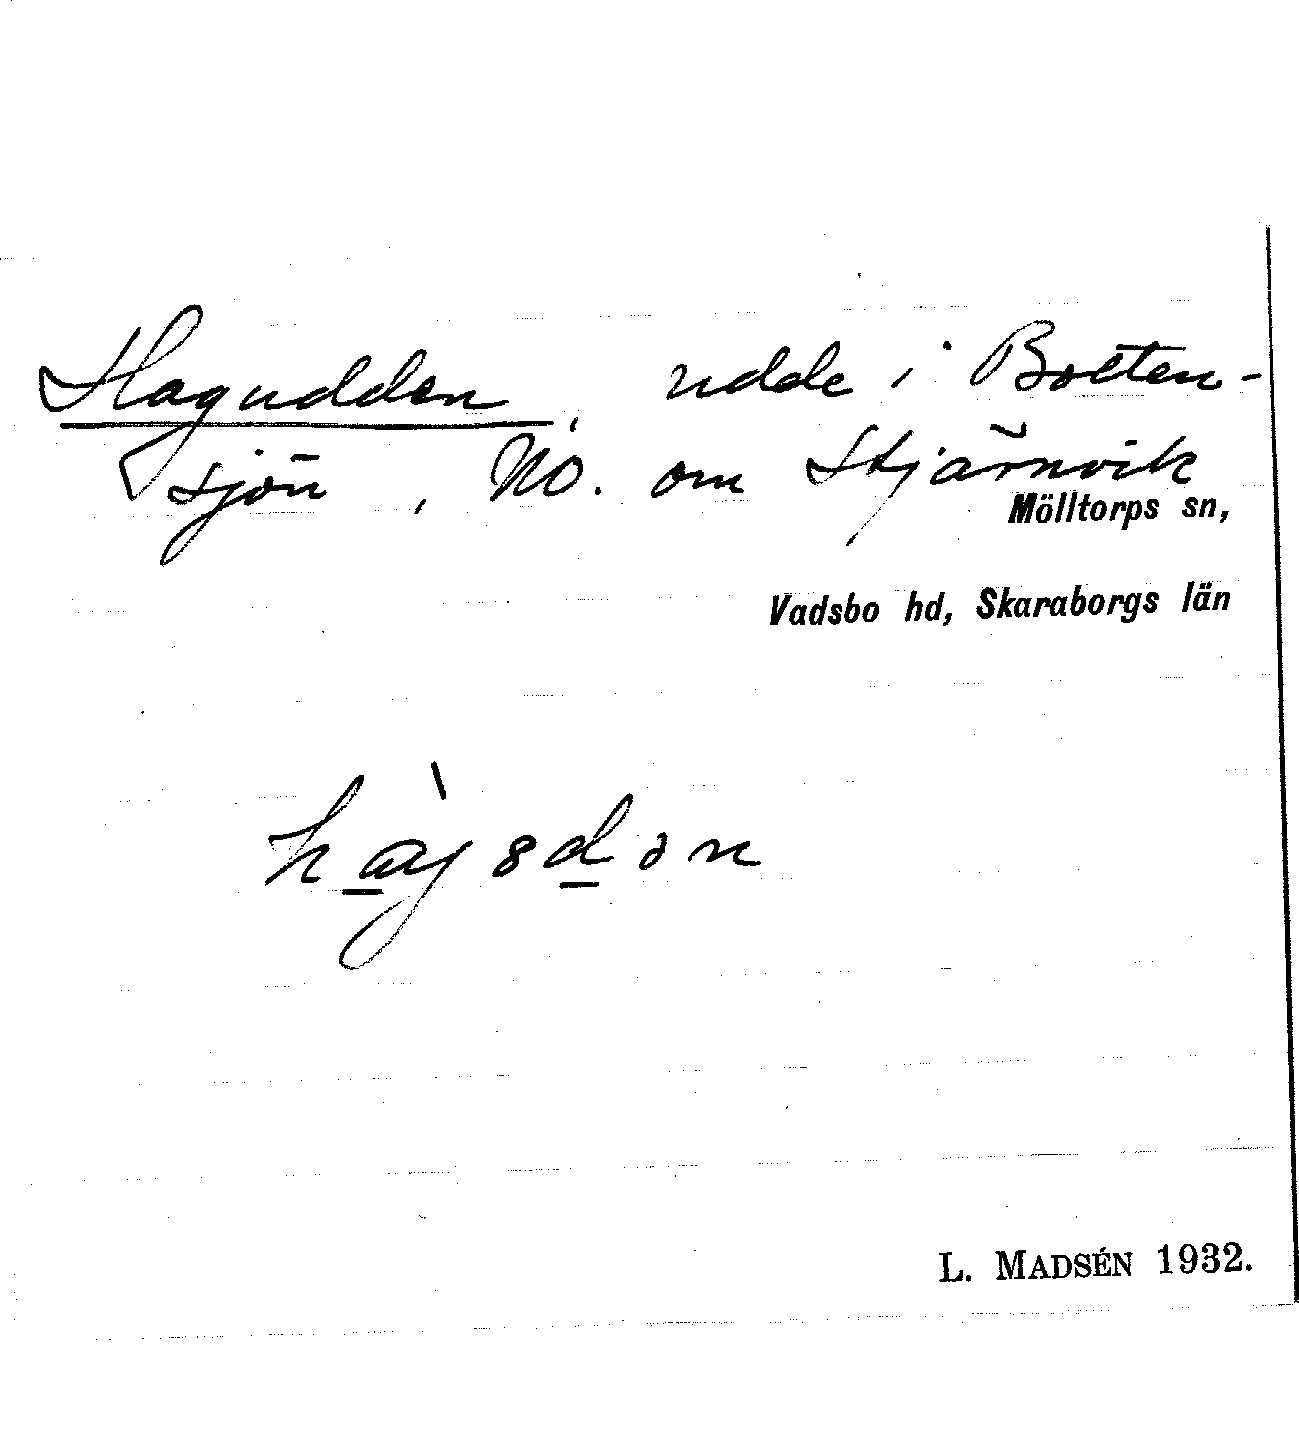 Hagudden, udde i Botten-
sjön, NO. om Stjärnvik
Mölltorps sn,
Vadsbo hd, Skaraborgs län
L. MADSÉN 1932.